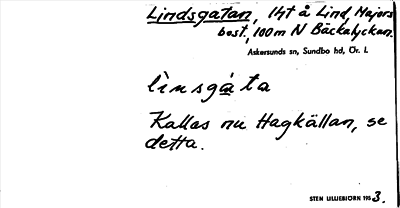 Lindsgatan, 1ht å Lind, Majors
bost., 100 m N Bäckalyckan.
Askersunds sn, Sundbo hd, Ör. l.
lìnsgáta
Kallas nu Hagkällan, se
detta.
STEN LILLIEBJÖRN 1953.